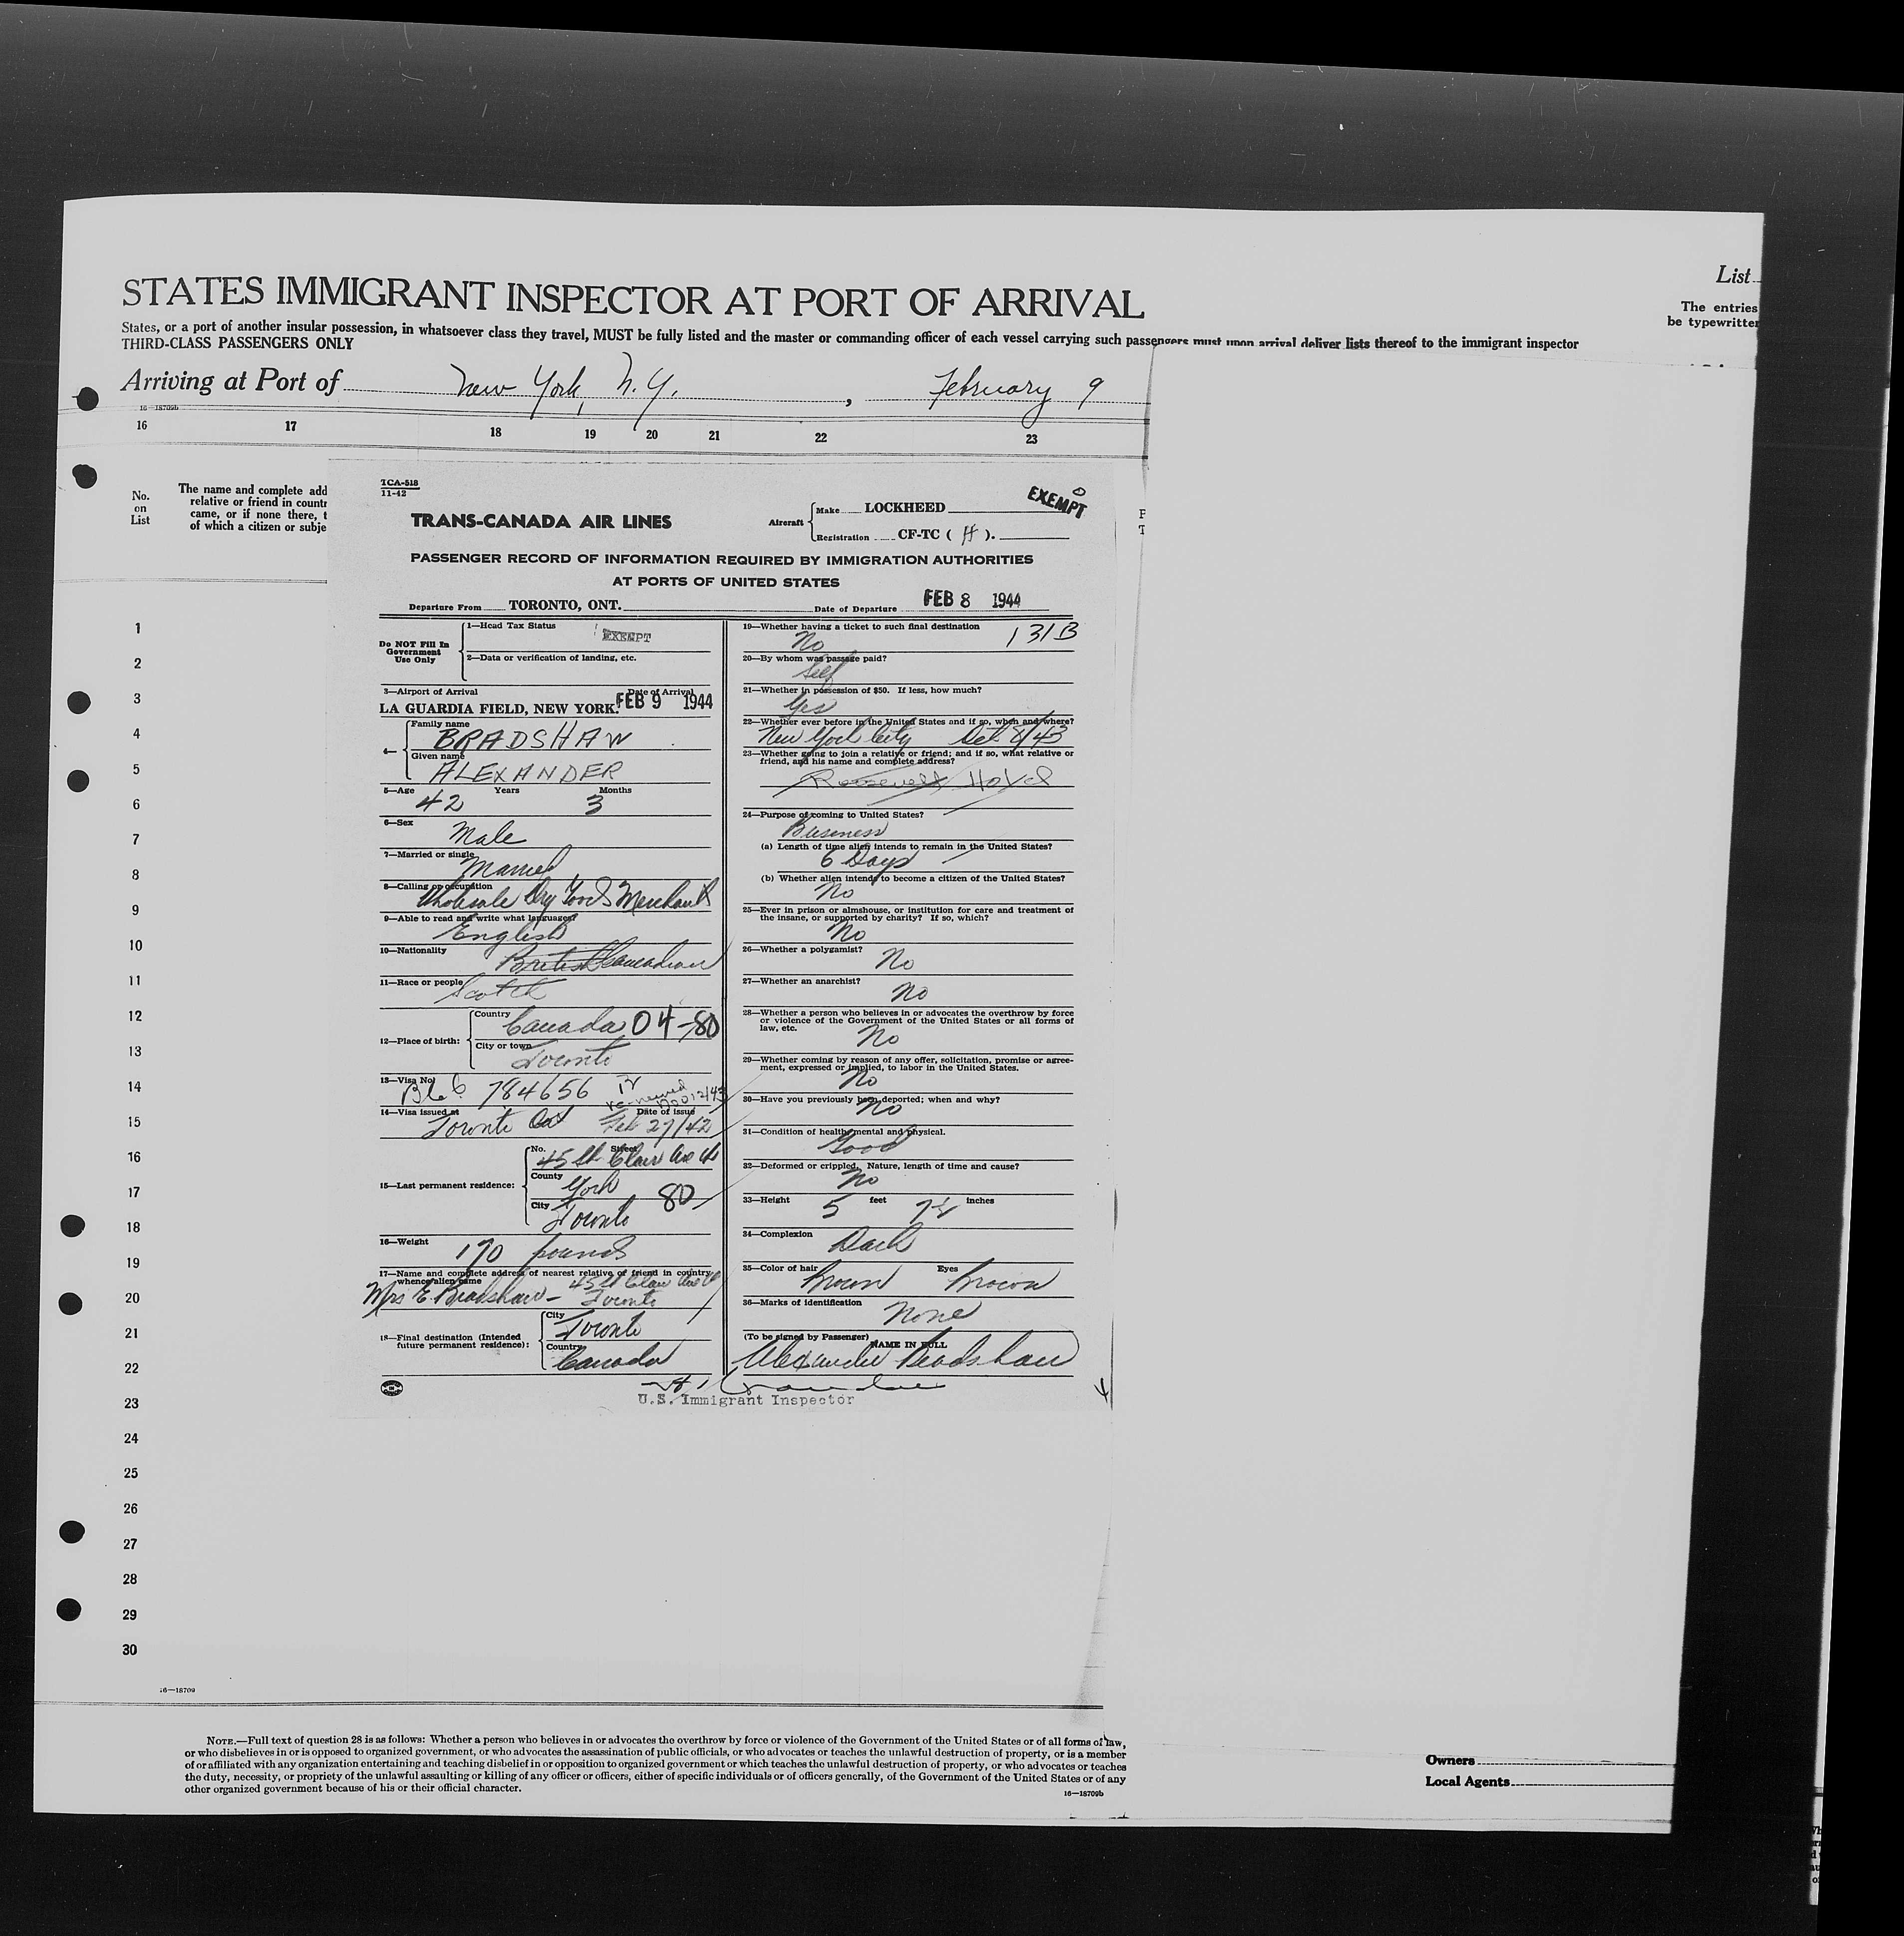 STATES IMMIGRANT INSPECTOR AT PORT OF ARRIVAL
List
States, or a port of another insular possession, in whatsoever class they travel, MUST be fully listed and the master or commanding officer of each vessel carrying such passengers must upon arrival deliver lists thereof to the immigrant inspector
THIRD-CLASS PASSENGERS ONLY
The entries
be typewritten
Arriving at Port of New York, N.Y. , February 9
16—18709b
16 17 18 19 20 21 22 23
No.
on
List
The name and complete add
relative or friend in countr
came, or if none there, t
of which a citizen or subje
TCA-518
11-42
TRANS-CANADA AIR LINES
Aircraft
Make LOCKHEED
Registration CF-TC ( H ).
EXEMPT
PASSENGER RECORD OF INFORMATION REQUIRED BY IMMIGRATION AUTHORITIES
AT PORTS OF UNITED STATES
Departure From TORONTO, ONT. Date of Departure FEB 8 1944
Do NOT Fill In
Government
Use Only
1—Head Tax Status EXEMPT
2—Data or verification of landing, etc.
3—Airport of Arrival Date of Arrival
LA GUARDIA FIELD, NEW YORK. FEB 9 1944
4—
Family name
BRADSHAW
Given name
ALEXANDER
5—Age 42 Years 3 Months
6—Sex Male
7—Married or single Married
8—Calling or occupation
Wholesale Dry Goods Merchant
9—Able to read and write what languages?
English
10—Nationality
British Canadian
11—Race or people
Scotch
12—Place of birth:
Country
Canada 04-80
City or town
Toronto
13—Visa No.
784656
renewed
14—Visa issued at Date of issue
Toronto Ont Feb 27/42
15—Last permanent residence:
No. Street
45 St. Clair Ave W
County
York 80
City
Toronto
16—Weight
170 pounds
17—Name and complete address of nearest relative or friend in country
whence alien came 45 St Clair Ave W
Mrs E. Bradshaw - Toronto
18—Final destination (Intended
future permanent residence):
City
Toronto
Country
Canada
19—Whether having a ticket to such final destination 131B
No
20—By whom was passage paid?
Self
21—Whether in possession of $50. If less, how much?
Yes
22—Whether ever before in the United States and if so, when and where?
New York City Oct 8/43
23—Whether going to join a relative or friend; and if so, what relative or
friend, and his name and complete address?
Roosevelt Hotel
24—Purpose of coming to United States?
Business
(a) Length of time alien intends to remain in the United States?
6 Days
(b) Whether alien intends to become a citizen of the United States?
No
25—Ever in prison or almshouse, or institution for care and treatment of
the insane, or supported by charity? If so, which?
No
26—Whether a polygamist?
No
27—Whether an anarchist?
No
28—Whether a person who believes in or advocates the overthrow by force
or violence of the Government of the United States or all forms of
law, etc.
No
29—Whether coming by reason of any offer, solicitation, promise or agree-
ment, expressed or implied, to labor in the United States.
No
30—Have you previously been deported; when and why?
No
31—Condition of health, mental and physical.
Good
32—Deformed or crippled. Nature, length of time and cause?
No
33—Height 5 feet 7½ inches
34—Complexion
Dark
35—Color of hair Eyes
Brown Brown
36—Marks of identification
None
(To be signed by Passenger) NAME IN FULL
Alexander Bradshaw
U.S. Immigrant Inspector
1
2
3
4
5
6
7
8
9
10
11
12
13
14
15
16
17
18
19
20
21
22
23
24
25
26
27
28
29
30
16—18709
NOTE.—Full text of question 28 is as follows: Whether a person who believes in or advocates the overthrow by force or violence of the Government of the United States or of all forms of law,
or who disbelieves in or is opposed to organized government, or who advocates the assassination of public officials, or who advocates or teaches the unlawful destruction of property, or is a member
of or affiliated with any organization entertaining and teaching disbelief in or opposition to organized government or which teaches the unlawful destruction of property, or who advocates or teaches
the duty, necessity, or propriety of the unlawful assaulting or killing of any officer or officers, either of specific individuals or of officers generally, of the Government of the United States or of any
other organized government because of his or their official character.
16—18709b
Owners
Local Agents